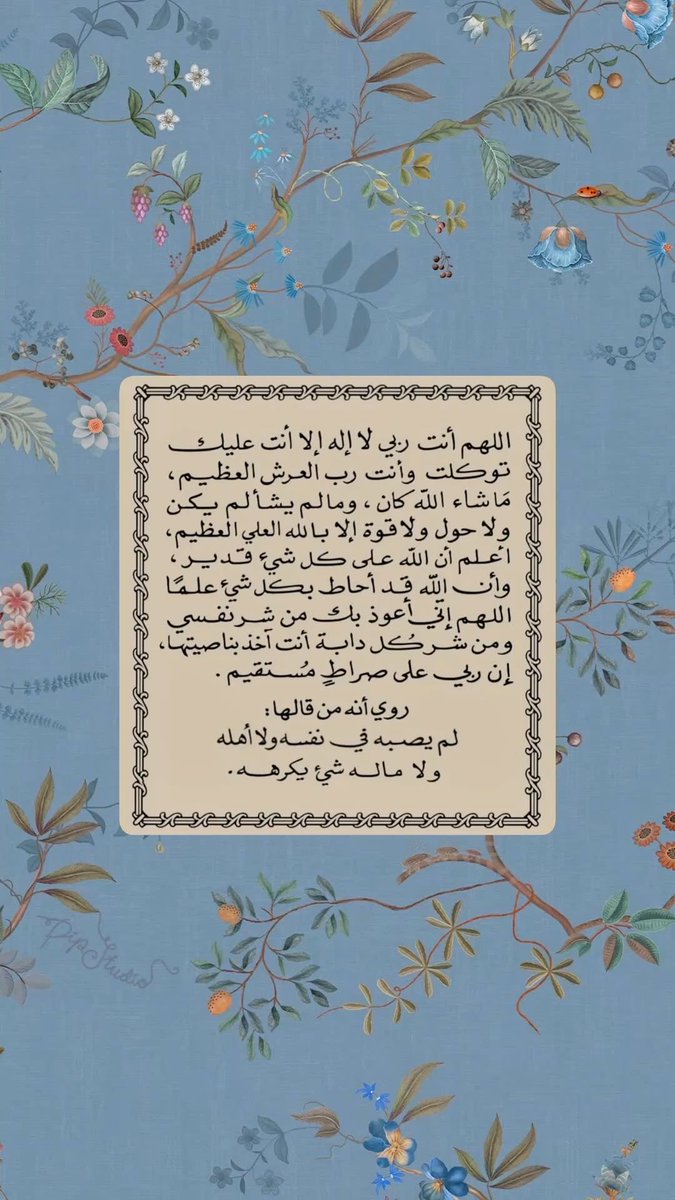 اللهم أنت ربي لا إله إلا أنت عليك
توكلت وأنت رب العرش العظيم،
مَا شاء اللّه كان ، ومالم يشألم يكن
ولا حول ولا قوة إلا بالله العلي العظيم،
أعلم أن اللّه على كل شيء قدير،
وأن اللّه قد أحاط بكل شيء علمًا
اللهم إنّي أعوذ بك من شر نفسي
ومن شر كُل دابة أنت آخذ بناصيتها،
إن ربي على صراطٍ مُستقيم .
روي أنه من قالها:
لم يصبه في نفسه ولا أهله
ولا ماله شيء يكرهه.
PipStudio